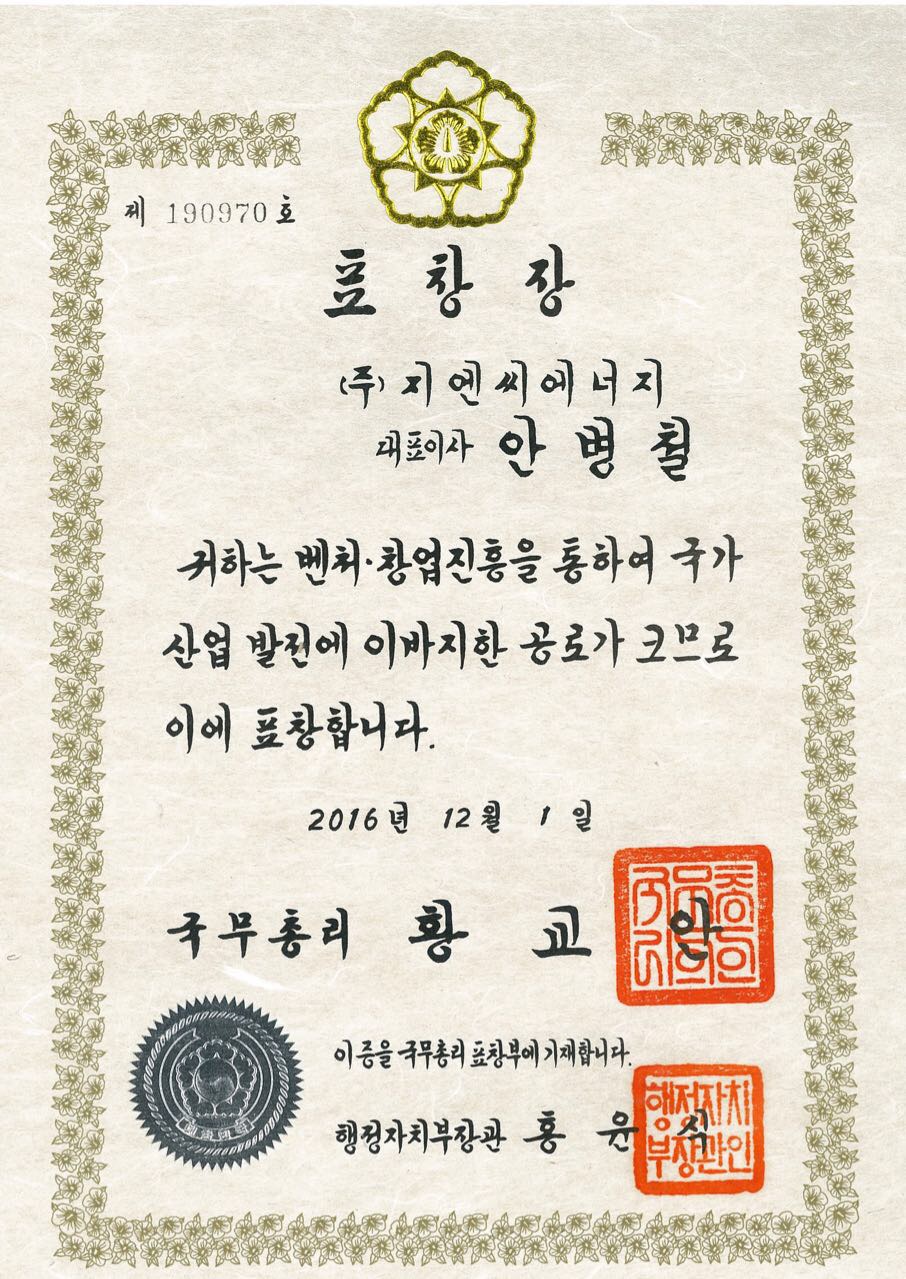 제 190970 호
표창장
(주) 지엔씨에너지
대표이사 안병철
귀하는 벤처·창업진흥을 통하여 국가
산업 발전에 이바지한 공로가 크므로
이에 표창합니다.
2016년 12월 1일
국무총리 황교안
이 증을 국무총리 표창부에 기재합니다.
행정자치부장관 홍윤식
행정자치
부장관인